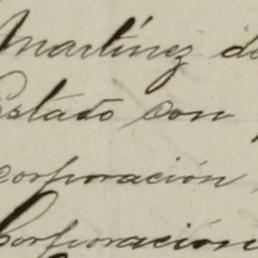 Martínez de
Estado con
corporación
Corporación